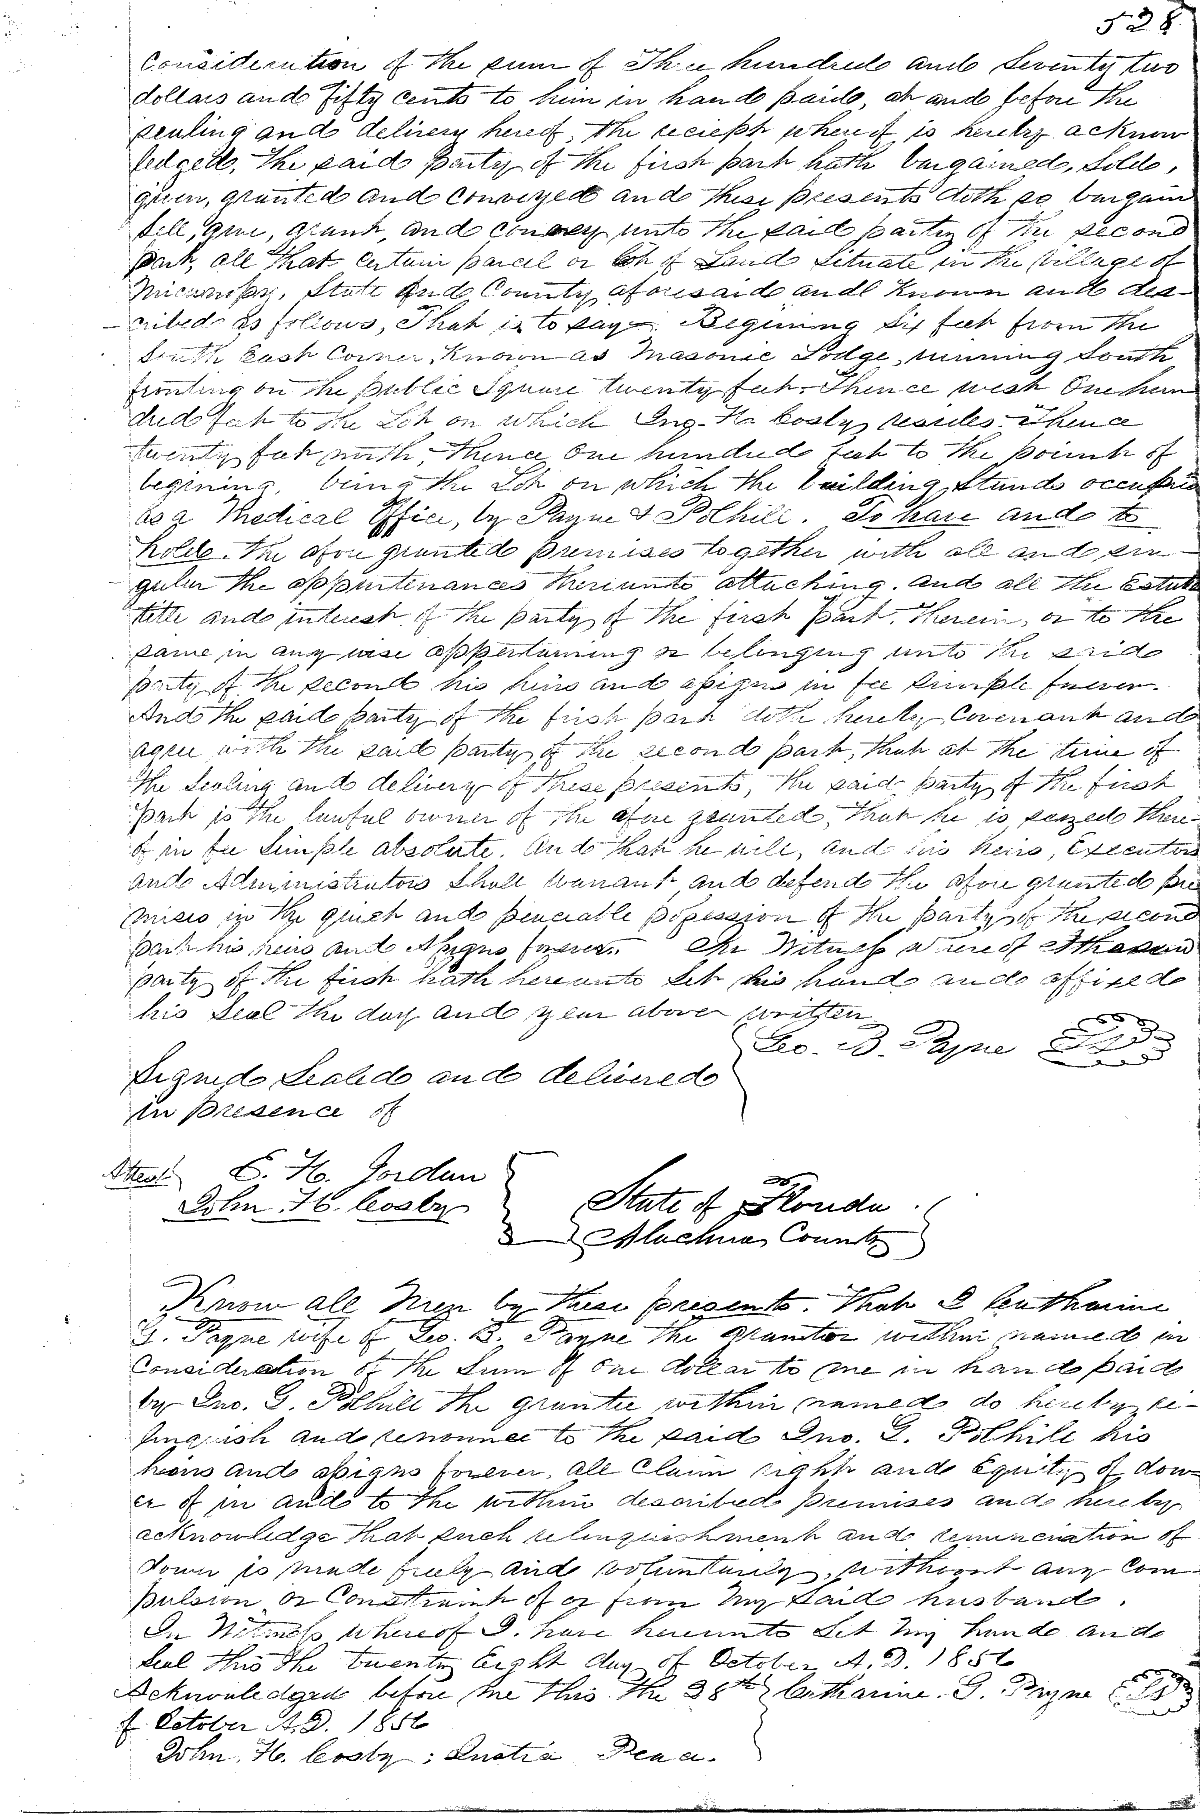 528
Consideration of the sum of Three hundred and Seventy two
dollars and fifty cents to him in hand paid, at and before the
sealing and delivery hereof, the reciept whereof is hereby acknow
ledged, the said party of the first part hath bargained, Sold,
given, granted and conveyed and these presents doth so bargain
sell, give, grant, and convey unto the said party of the second
part, all that certain parcel or Lot of Land Situate in the Village of
Micanopy, State and County aforesaid and Known and des-
cribed as follows, That is to say. Begining Six feet from the
South East Corner, Known as Masonic Lodge, running South
fronting on the public Square twenty feet. Thence west One hun
dred feet to the Lot on which Jno. H. Cosby resides. Thence
twenty feet north, Thence One hundred feet to the point of
begining, being the Lot on which the building Stands occupied
as a Medical Office, by Payne & Polhill. To have and to
hold. the afore granted premises together with all and sin-
gular the appurtenances thereunto attaching. and all the Estate
title and interest of the party of the first part. therein, or to the
same in any wise appertaining or belonging unto the said
party of the second his heirs and assigns in fee simple forever.
And the said party of the first part doth hereby Covenant and
agree with the said party of the second part, that at the time of
the Sealing and delivery of these presents, the said party of the first
part is the lawful owner of the afore granted, that he is seized there-
of in fee Simple absolute. And that he will, and his heirs, Executors
and Administrators Shall warrant and defend the afore granted pre
mises in the quiet and peaceable possession of the party of the second
part his heirs and Assigns forever. In Witness whereof the said
party of the first hath hereunto Set his hand and affixed
his Seal the day and year above written
Geo. B. Payne LS
Signed Sealed and delivered
in presence of
Attest E. H. Jordan
John H. Cosby
State of Florida
Alachua County
Know all Men by these presents. That I Catharine
G. Payne wife of Geo. B. Payne the grantor within named in
Consideration of the Sum of one dollar to me in hand paid
by Jno. G. Polhill the grantee within named do hereby re-
linquish and renounce to the said Jno. G. Polhill his
heirs and assigns forever, all Claim right and Equity of dow-
er of in and to the within described premises and hereby
acknowledge that such relinquishment and renunciation of
dower is made freely and voluntarily, without any com-
pulsion or Constraint of or from My Said husband.
In Witness whereof I. have hereunto Set My hand and
Seal this the twenty Eight day of October A.D. 1856
Acknowledged before me this the 28th Catharine. G. Payne LS
of October A.D. 1856
John. H. Cosby: Justice Peace.